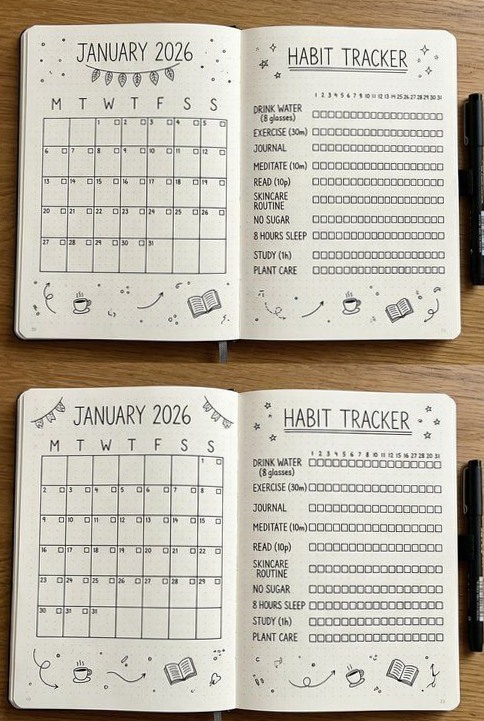 JANUARY 2026
M T W T F S S
1 2 3 4 5
6 7 8 9 10 11 12
13 14 15 16 17 18 19
20 21 22 23 24 25 26
27 28 29 30 31
HABIT TRACKER
1 2 3 4 5 6 7 8 9 10 11 12 13 14 25 26 27 28 29 30 31
DRINK WATER
(8 glasses)
EXERCISE (30m)
JOURNAL
MEDITATE (10m)
READ (10p)
SKINCARE
ROUTINE
NO SUGAR
8 HOURS SLEEP
STUDY (1h)
PLANT CARE
JANUARY 2026
M T W T F S S
1
2 3 4 5 6 7 8
9 10 11 12 13 14 15
16 17 18 19 20 21 22
23 24 25 26 27 28 29
30 31 31
HABIT TRACKER
DRINK WATER
(8 glasses)
EXERCISE (30m)
JOURNAL
MEDITATE (10m)
READ (10p)
SKINCARE
ROUTINE
NO SUGAR
8 HOURS SLEEP
STUDY (1h)
PLANT CARE